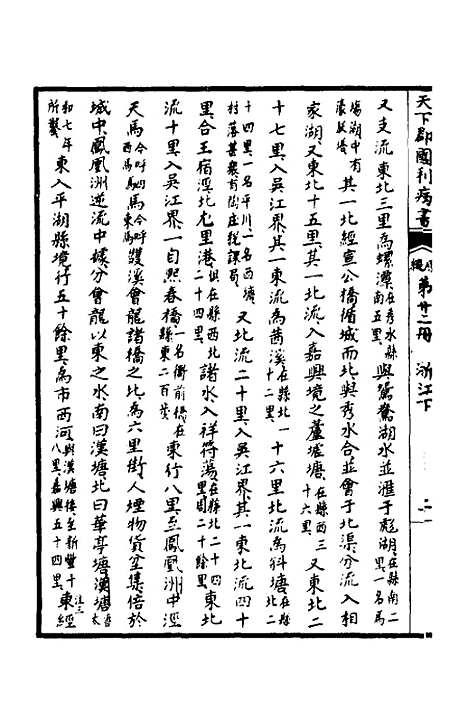 天下郡國利病書 原編第廿二冊 浙江下 二
又支流東北三里為螺潭在秀水縣南五里與鴛鴦湖水並滙于彪湖在縣南二里一名馬
塲湖中有其一北經宣公橋循城而北與秀水合並會于北渠分流入相
家湖又東北十五里其一北流入嘉興境之蘆墟塘在縣西三十六里又東北二
十七里入吳江界其一東流為茜溪在縣北一十二里十六里北流為斜塘在縣北二
十四里一名平川一名西塘村落甚聚有陶庄稅課局又北流二十里入吳江界其一東北流四十
里合王宿涇北尤里港俱在縣西北二十四里諸水入祥符蕩在縣北二十四里周二十餘里東北
流十里入吳江界一自熙春橋一名衙前橋在縣東二百黃東行八里至鳳凰洲中逕
天馬今呼西馬駟馬今呼東馬䕶溪會龍諸橋之北為六里街人堙物貨奎集倍於
城中鳳凰洲逆流中據分會龍以東之水南曰漢塘北曰華亭塘漢塘吉太
和七年所鑿東入平湖縣境行五十餘里為市西河與漢塘接至新豐十八里嘉興五十四里注三東經